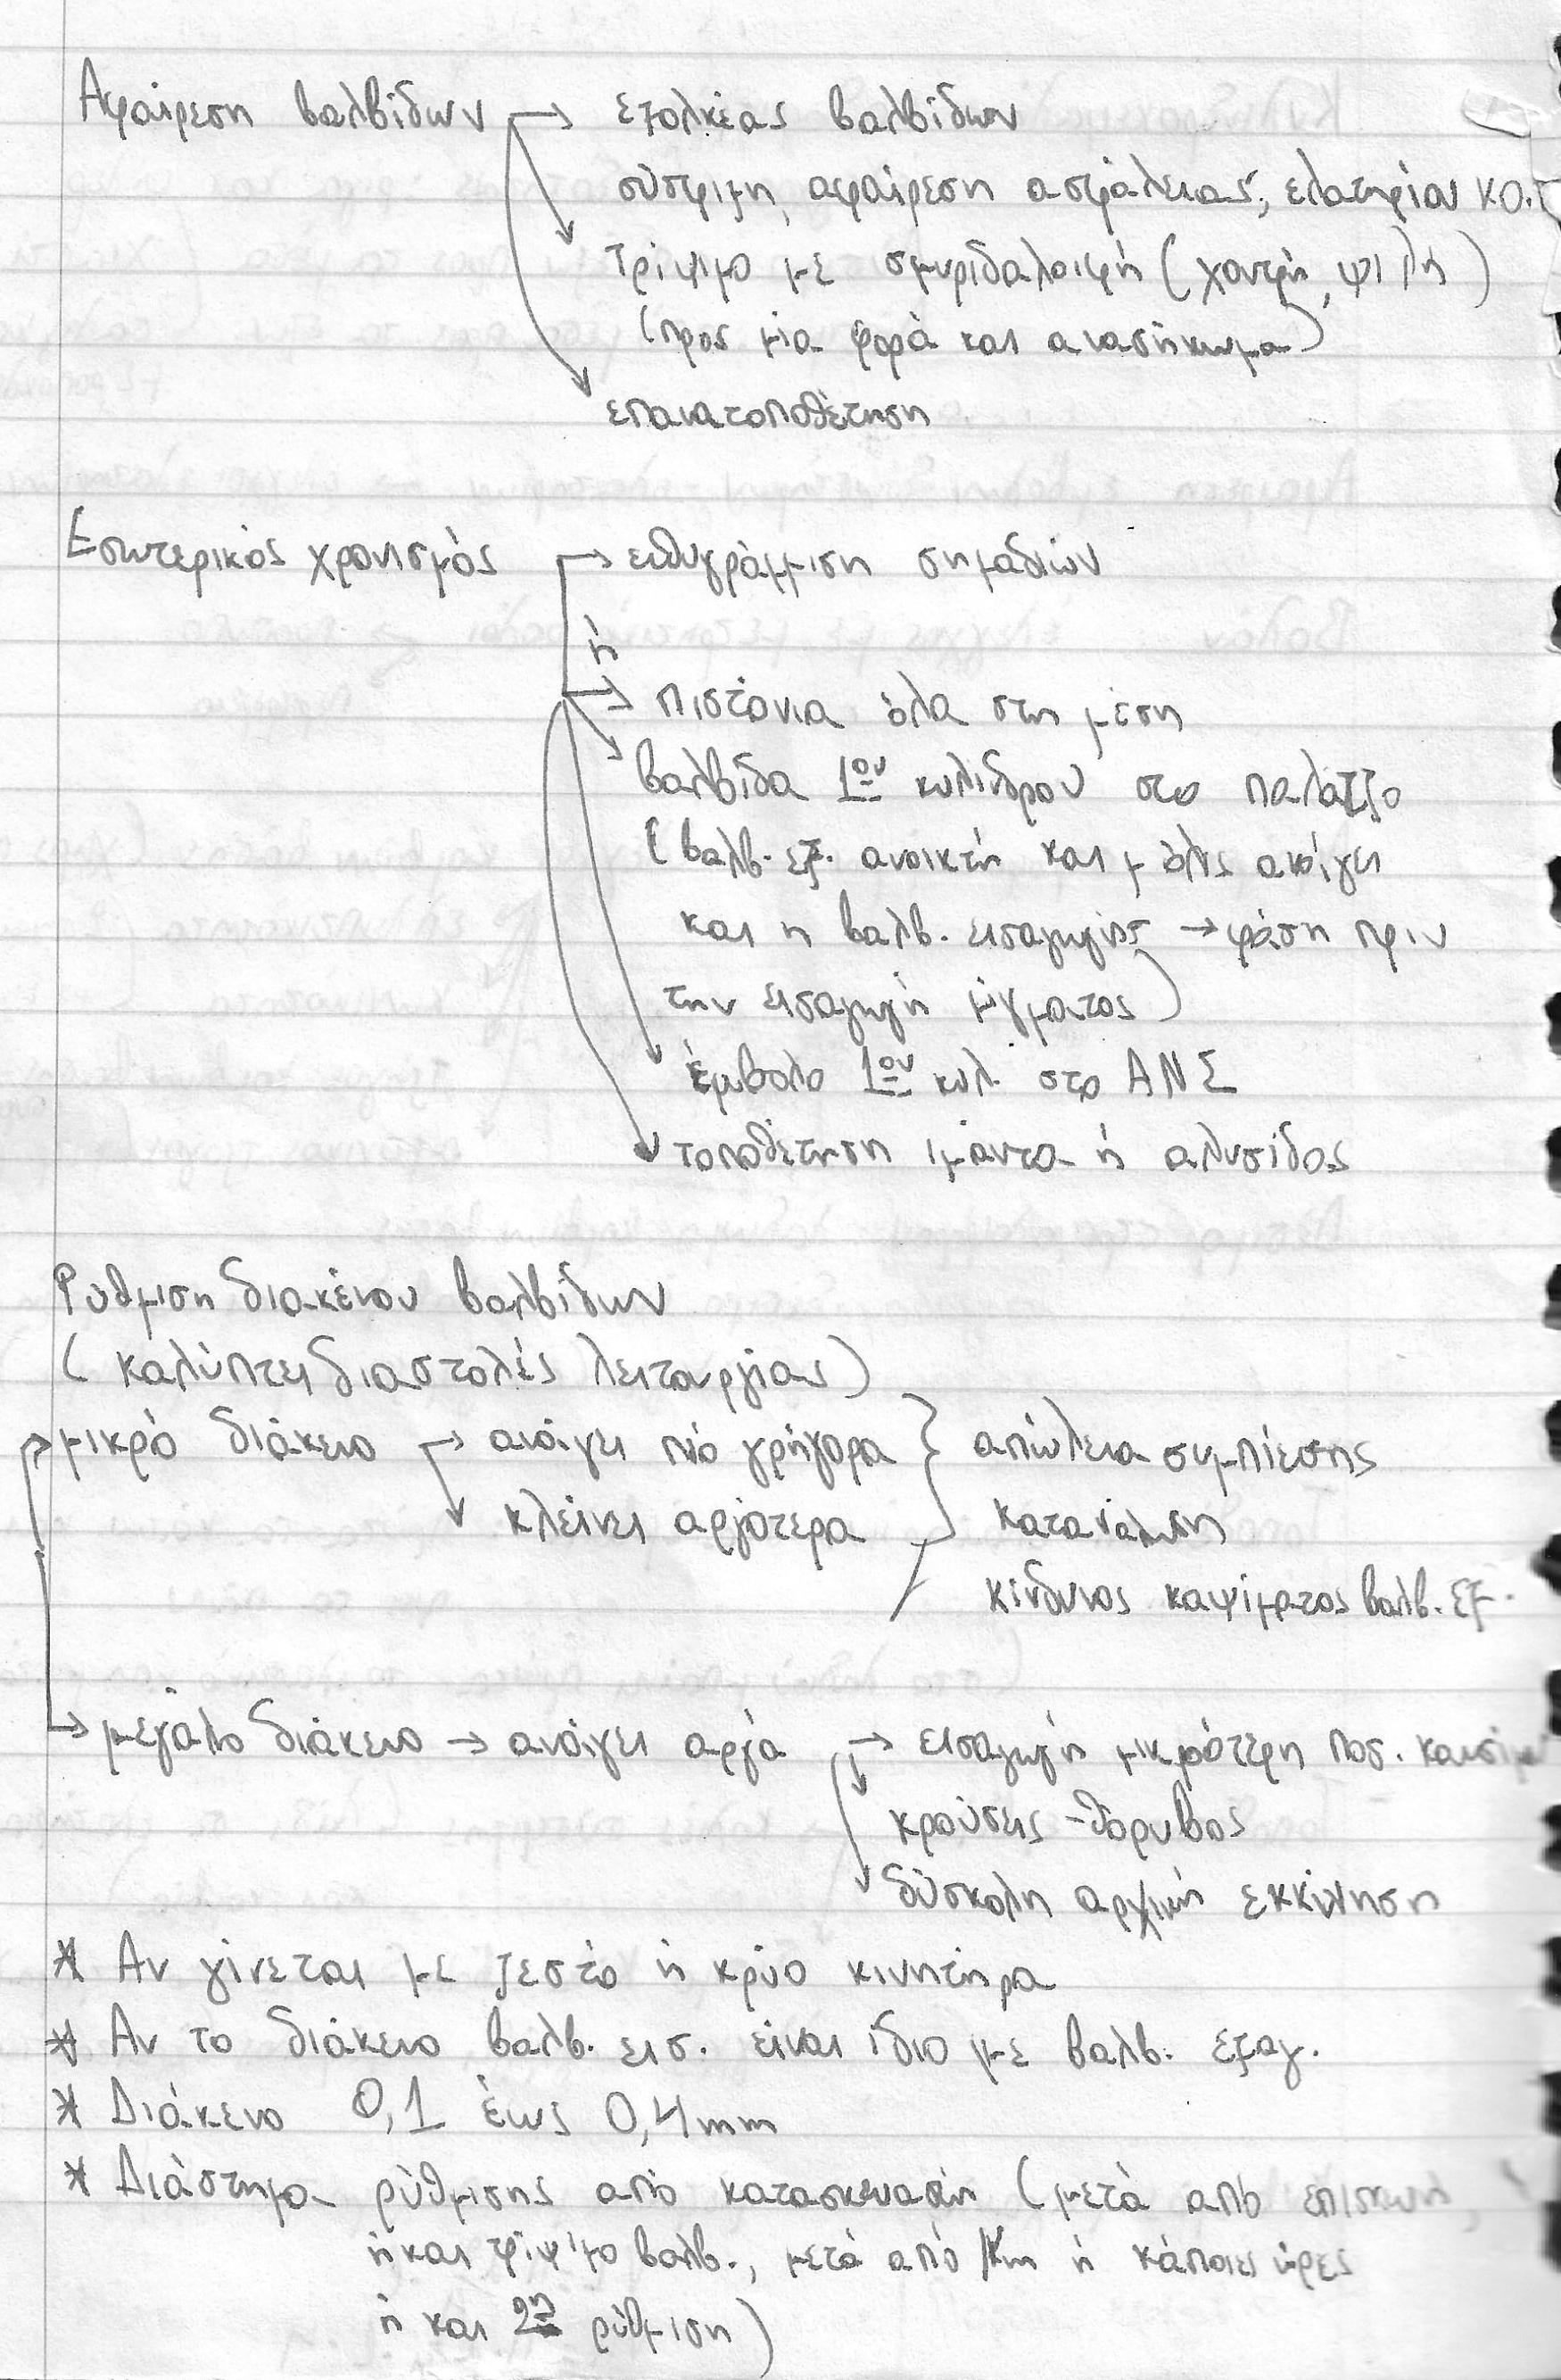 Αφαίρεση βαλβίδων → εξολκέας βαλβίδων
σύσφιξη, αφαίρεση ασφάλειας, ελατηρίου κο.
τρίψιμο με σμυριδαλοιφή (χοντρή, ψιλή)
(προς μία φορά και ανασήκωμα)
επανατοποθέτηση
Εσωτερικός χρονισμός → ευθυγράμμιση σημαδιών
ή
→ πιστόνια όλα στη μέση
βαλβίδα 1ου κυλίνδρου στο παλάτζο
(βαλβ. εξ. ανοικτή και μόλις ανοίγει
και η βαλβ. εισαγωγής → φάση πριν
την εισαγωγή μίγματος)
έμβολο 1ου κυλ. στο ΑΝΣ
τοποθέτηση ιμάντα ή αλυσίδας
Ρύθμιση διακένου βαλβίδων
(καλύπτει διαστολές λειτουργίας)
→ μικρό διάκενο → ανοίγει πιό γρήγορα } απώλεια συμπίεσης
κλείνει αργότερα κατανάλωση
κίνδυνος καψίματος βαλβ. εξ.
→ μεγάλο διάκενο → ανοίγει αργά → εισαγωγή μικρότερη ποσ.
κρούσεις - θόρυβος
δύσκολη αρχική εκκίνηση
* Αν γίνεται με ζεστό ή κρύο κινητήρα
* Αν το διάκενο βαλβ. εισ. είναι ίδιο με βαλβ. εξαγ.
* Διάκενο 0,1 έως 0,4mm
* Διάστημα ρύθμισης από κατασκευαστή (μετά από επισκευή,
ή και τρίψιμο βαλβ., μετά από km ή κάποιες ώρες
ή και 2η ρύθμιση)